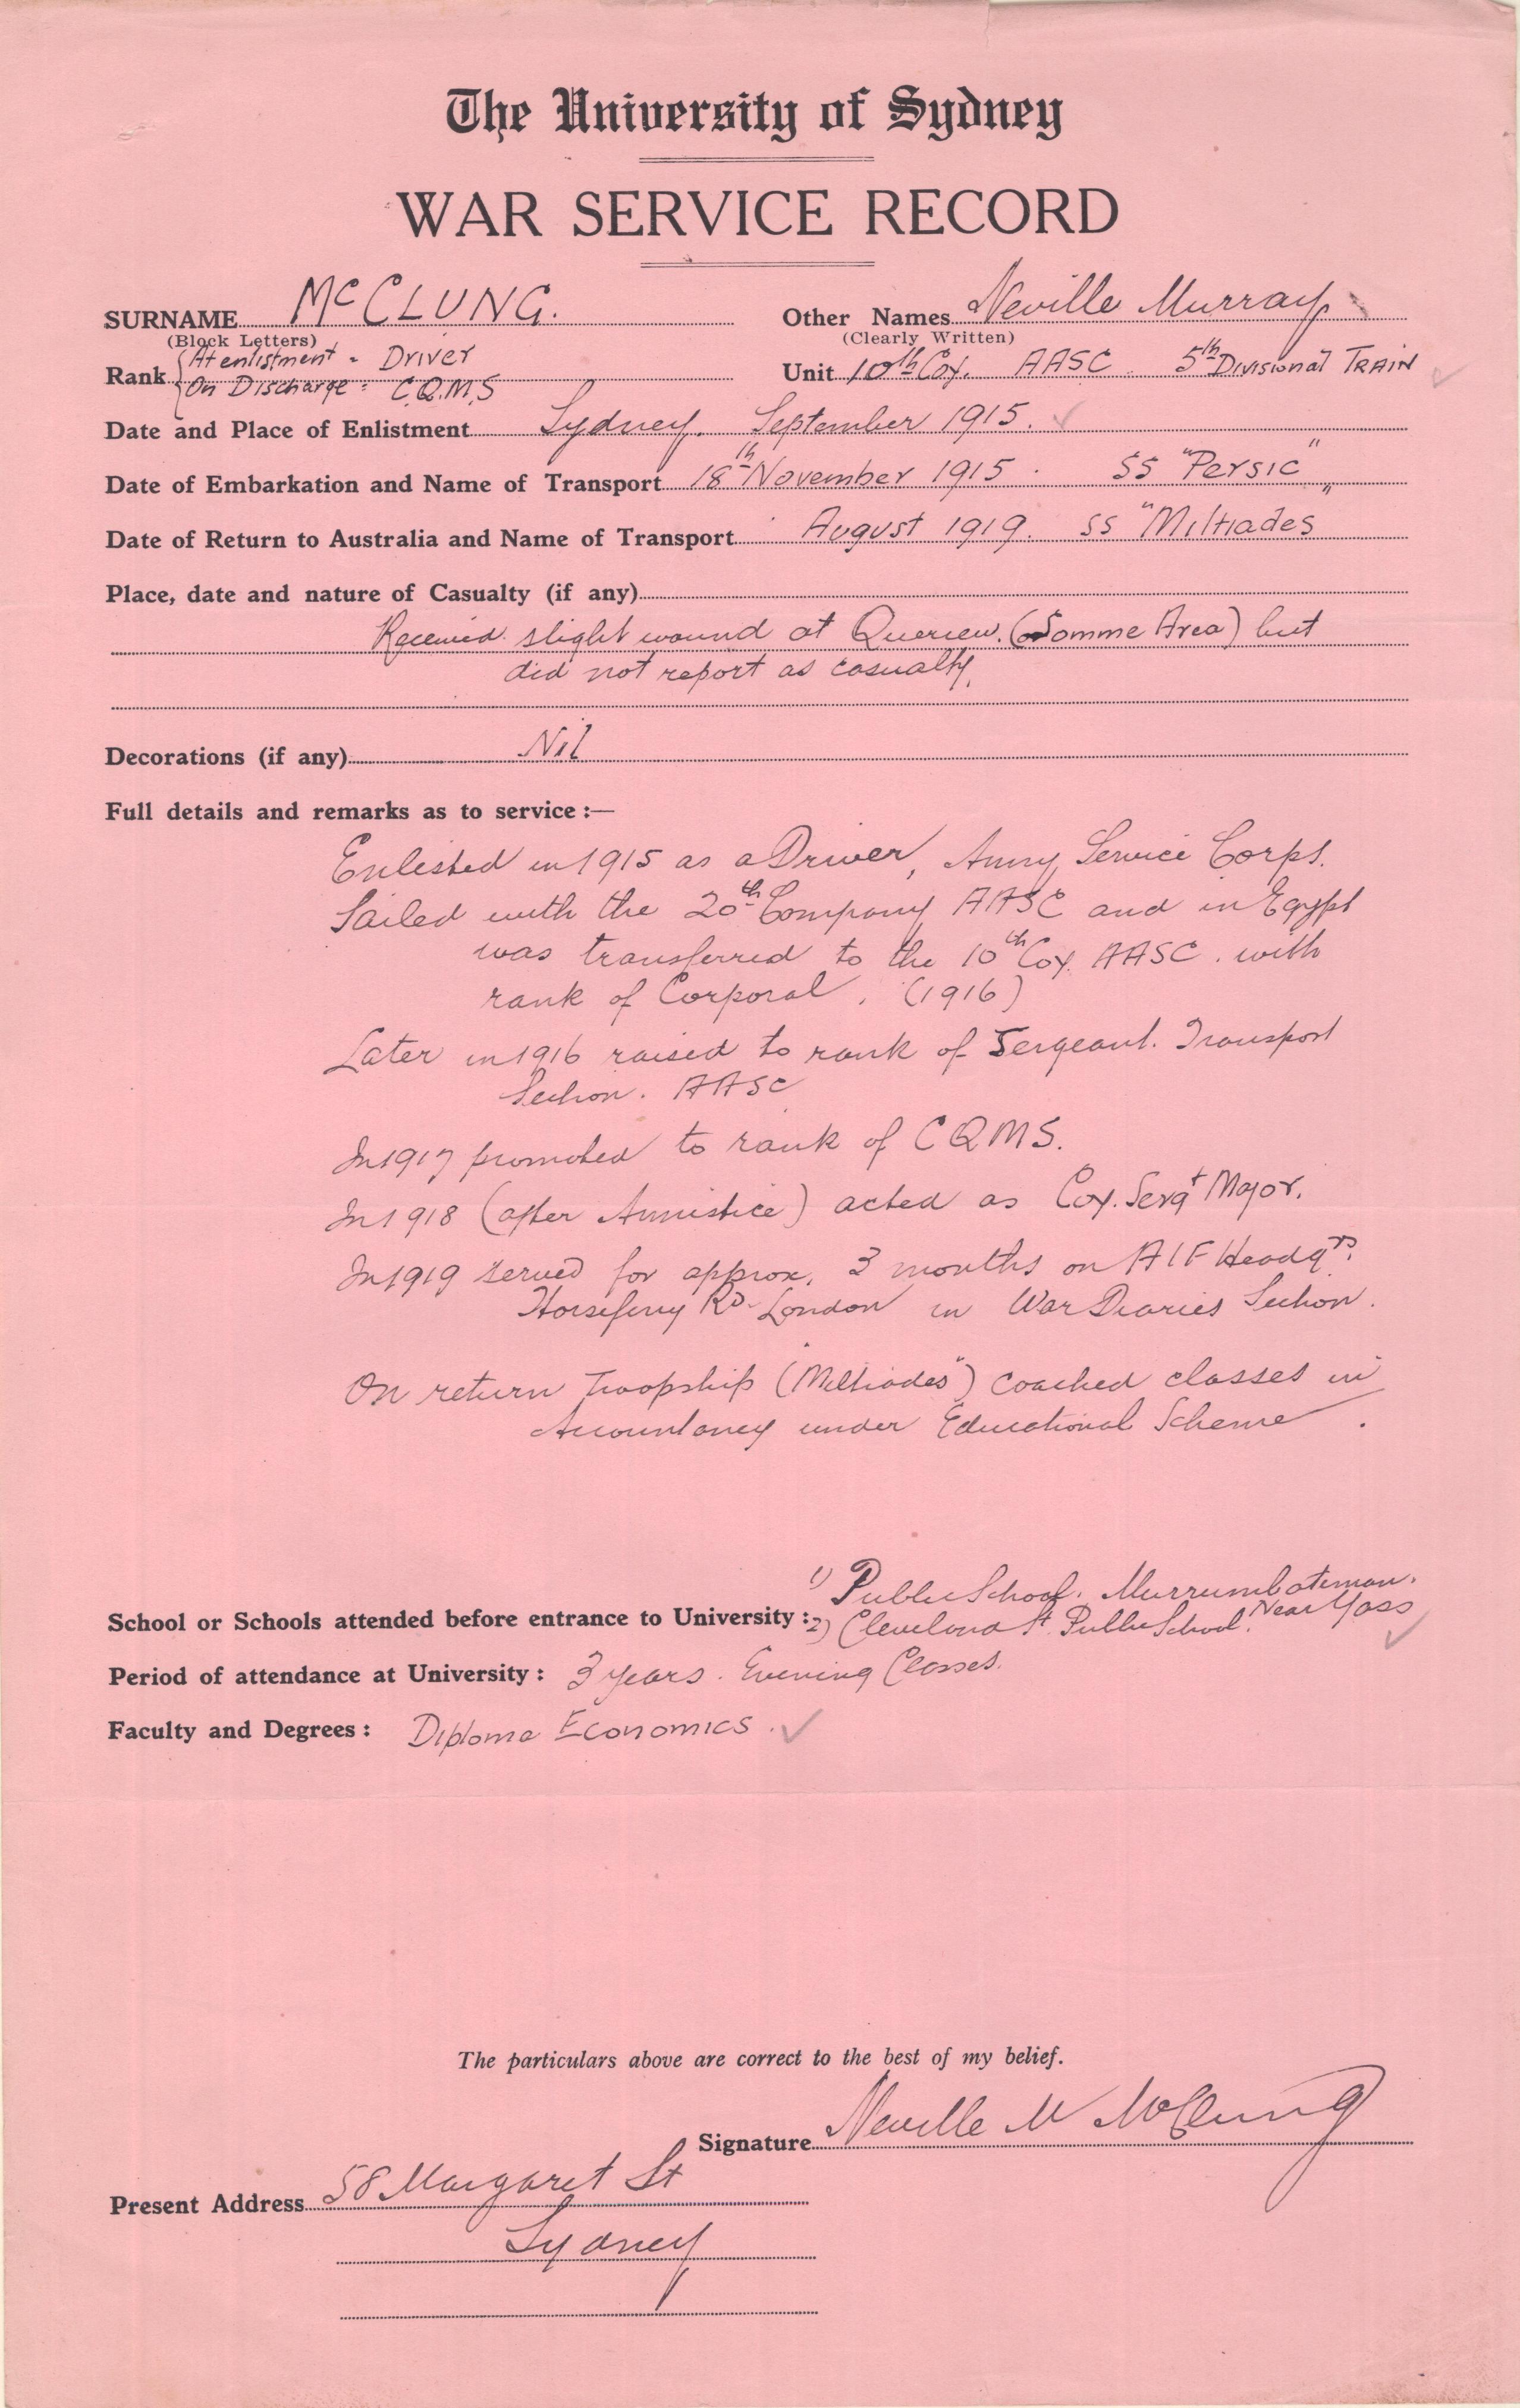 The University of Sydney
WAR SERVICE RECORD
SURNAME McCLUNG. Other Names Neville Murray
(Block Letters) (Clearly Written)
Rank { At enlistment - Driver
On Discharge = C.Q.M.S
Unit 10th Coy. AASC 5th Divisional TRAIN
Date and Place of Enlistment Sydney. September 1915.
Date of Embarkation and Name of Transport 18th November 1915. SS "Persic"
Date of Return to Australia and Name of Transport August 1919. SS "Miltiades"
Place, date and nature of Casualty (if any)
Received slight wound at Querieu. (Somme Area) but
did not report as casualty.
Decorations (if any) Nil
Full details and remarks as to service :—
Enlisted in 1915 as a Driver, Army Service Corps.
Sailed with the 20th Company AASC and in Egypt
was transferred to the 10th Coy. AASC. with
rank of Corporal. (1916)
Later in 1916 raised to rank of Sergeant. Transport
Section. AASC
In 1917 promoted to rank of CQMS.
In 1918 (after Armistice) acted as Coy. Sergt Major.
In 1919 served for approx. 3 months on AIF Headqrs.
Horseferry Rd London in War Diaries Section.
On return Troopship (Miltiades") coached classes in
Accountancy under Educational Scheme.
1) Public School. Murrumbateman.
Near Yass
School or Schools attended before entrance to University : 2) Cleveland St Public School.
Period of attendance at University : 3 years. Evening Classes.
Faculty and Degrees : Diploma Economics.
The particulars above are correct to the best of my belief.
Signature Neville M McClung
Present Address 58 Margaret St
Sydney